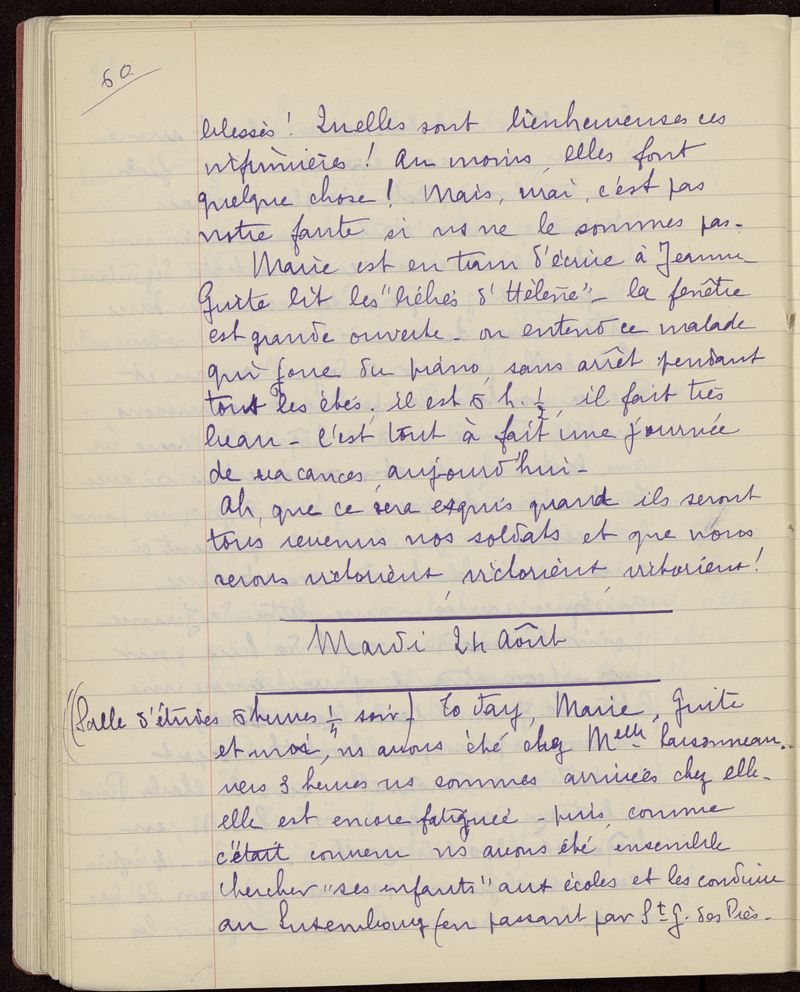 60
blessés! Quelles sont bienheureuses ces
infirmières! Au moins, elles font
quelque chose! Mais, vrai, c'est pas
notre faute si ns ne le sommes pas-
Marie est en train d'écrire à Jeanne-
Guite lit les "bébés d'Hélène" - la fenêtre
est grande ouverte - on entend ce malade
qui joue du piano, sans arrêt pendant
tout les étés, il est 5 h. ½, il fait très
beau - C'est tout à fait une journée
de vacances, aujourd'hui -
Ah, que ce sera exquis quand ils seront
tous revenus nos soldats et que nous
serons victorient, victorient, victorient!
Mardi 24 Août
(Salle d'études 5 heures ¼ soir) To day, Marie, Guite
et moi, ns avons été chez Melle
vers 3 heures ns sommes arrivées chez elle-
elle est encore fatiguée - puis, comme
c'était convenu ns avons été ensemble
chercher "ses enfants" aux écoles et les conduire
au Luxembourg (en passant par St G. des Près-